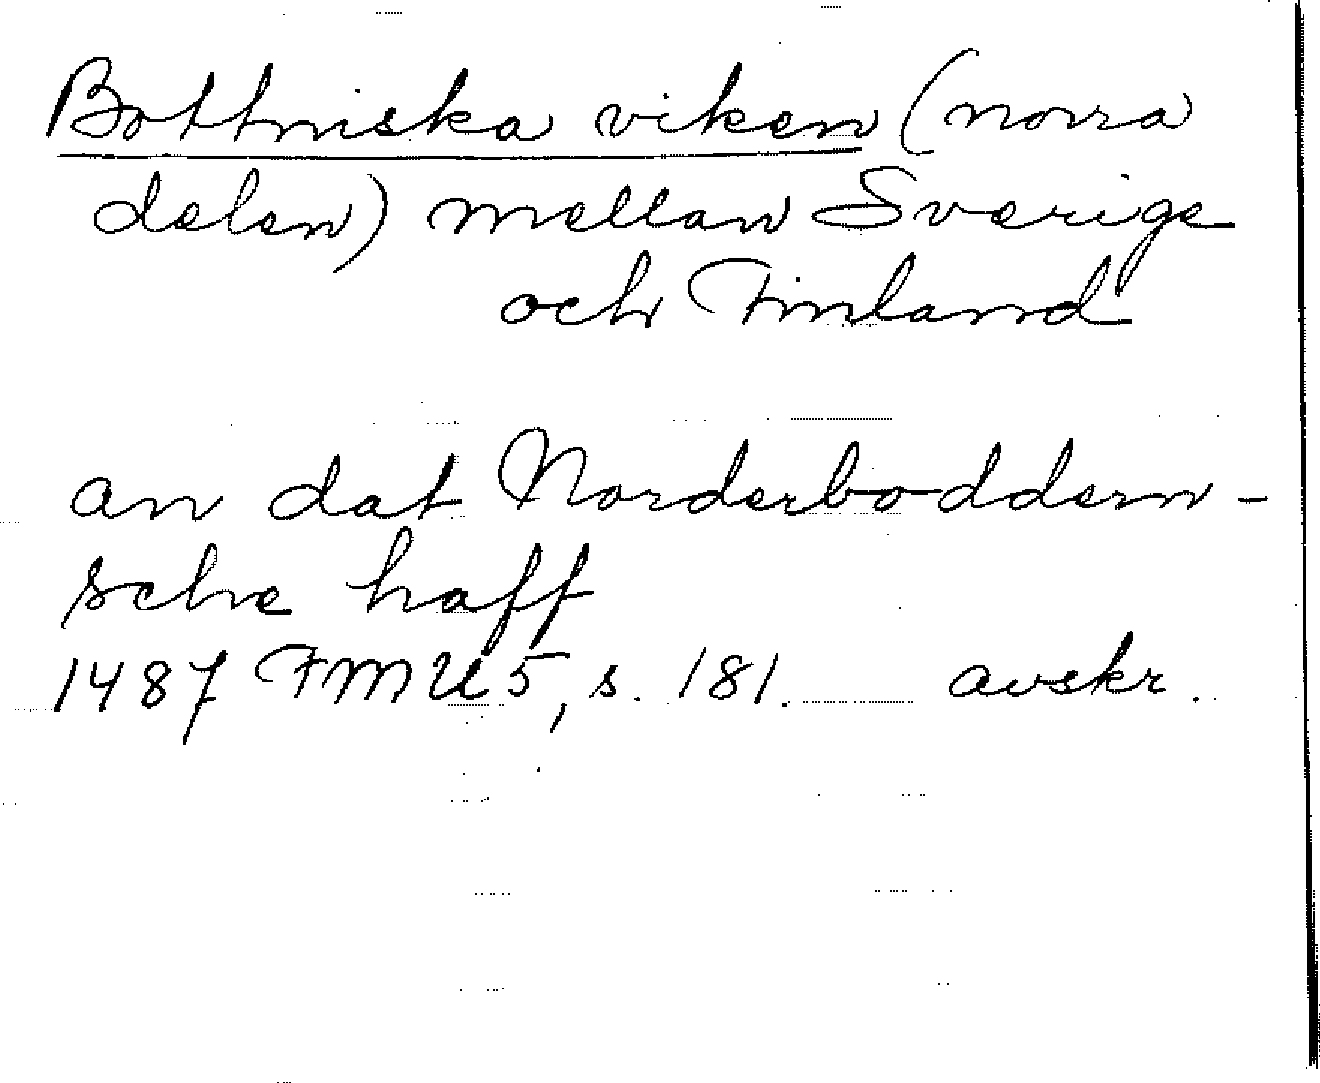 Bottniska viken (norra
delen) mellan Sverige
och Finland
an dat Norderboddern-
sche haff
1487 FMU 5, s. 181. avskr.